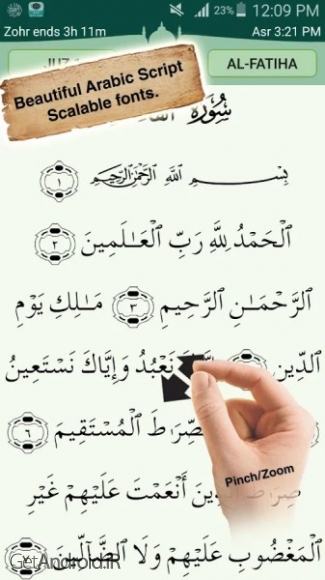 23% 12:09 PM
Zohr ends 3h 11m Asr 3:21 PM
AL-FATIHA
Beautiful Arabic Script
Scalable fonts.
سُورَة
بِسْمِ ٱللَّهِ ٱلرَّحْمَٰنِ ٱلرَّحِيمِ ١
ٱلْحَمْدُ لِلَّهِ رَبِّ ٱلْعَـٰلَمِينَ ٢
ٱلرَّحْمَـٰنِ ٱلرَّحِيمِ ٣ مَـٰلِكِ يَوْمِ
ٱلدِّينِ نَعْبُدُ وَإِيَّاكَ نَسْتَعِينُ
ٱلْمُسْتَقِيمَ ٦
أَنْعَمْتَ عَلَيْهِمْ غَيْرِ
ٱلْمَغْضُوبِ عَلَيْهِمْ وَلَا ٱلضَّآلِّينَ
Pinch/Zoom
GetAndroid.IR